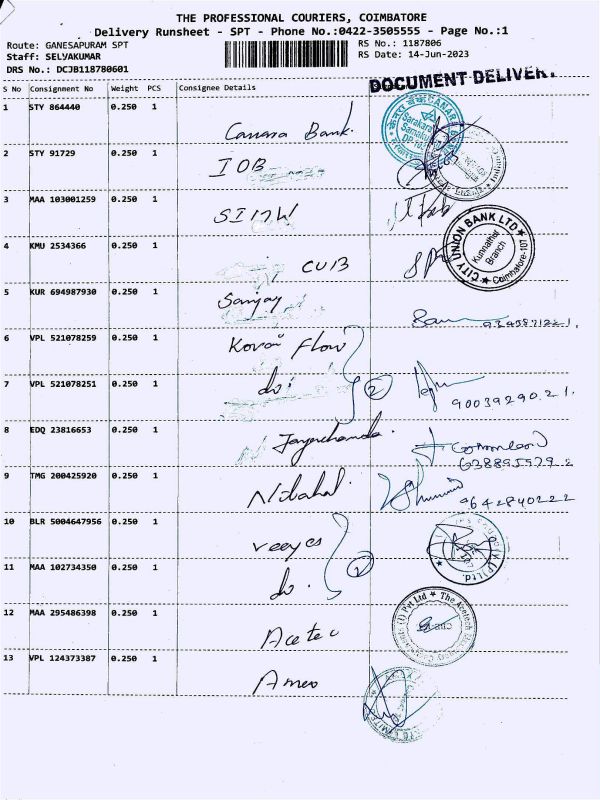 THE PROFESSIONAL COURIERS, COIMBATORE
Delivery Runsheet - SPT - Phone No.:0422-3505555 - Page No.:1
Route: GANESAPURAM SPT
RS No.: 1187806
Staff: SELVAKUMAR
RS Date: 14-Jun-2023
DRS No.: DCJB118780601
DOCUMENT DELIVERY
S No Consignment No Weight PCS Consignee Details
1 STY 864440 0.250 1 Canara Bank.
2 STY 91729 0.250 1 IOB
3 MAA 103001259 0.250 1
4 KMU 2534366 0.250 1 CUB
CITY UNION BANK LTD
Kunnathur Branch
Coimbatore-107
5 KUR 694987930 0.250 1 Sanjay
6 VPL 521078259 0.250 1 Kovai Flow
7 VPL 521078251 0.250 1 do 2
90039290 21.
8 EDQ 23816653 0.250 1
9 TMG 200425920 0.250 1
9642840222
10 BLR 5004647956 0.250 1 veeyes
11 MAA 102734350 0.250 1 do. 2
12 MAA 295486398 0.250 1 Acetec
13 VPL 124373387 0.250 1